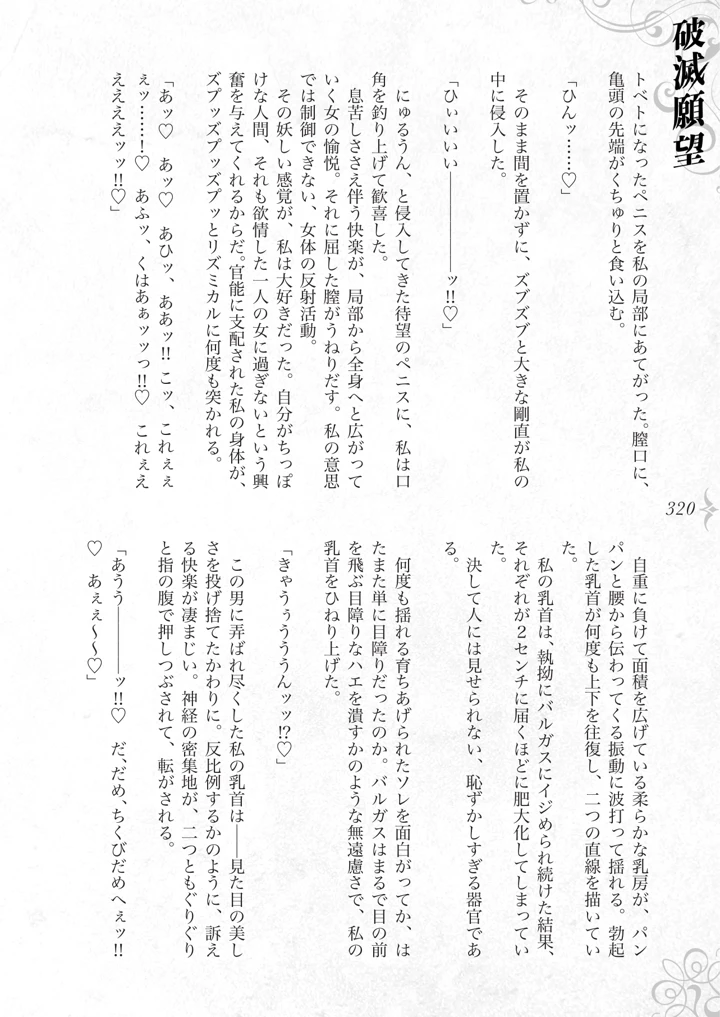 破滅願望
トベトになったペニスを私の局部にあてがった。膣口に、
亀頭の先端がくちゅりと食い込む。
「ひんッ……♡」
そのまま間を置かずに、ズブズブと大きな剛直が私の
中に侵入した。
「ひぃいいい――――ッ!!♡」
にゅるうん、と侵入してきた待望のペニスに、私は口
角を釣り上げて歓喜した。
息苦しささえ伴う快楽が、局部から全身へと広がって
いく女の愉悦。それに屈した膣がうねりだす。私の意思
では制御できない、女体の反射活動。
その妖しい感覚が、私は大好きだった。自分がちっぽ
けな人間、それも欲情した一人の女に過ぎないという興
奮を与えてくれるからだ。官能に支配された私の身体が、
ズプッズプッズプッとリズミカルに何度も突かれる。
「あッ♡　あッ♡　あひッ、ああッ!! こッ、これぇぇ
ぇッ……!♡　あふッ、くはあぁッッっ!!♡　これぇえ
ええええッッ!!♡」
320
自重に負けて面積を広げている柔らかな乳房が、パン
パンと腰から伝わってくる振動に波打って揺れる。勃起
した乳首が何度も上下を往復し、二つの直線を描いてい
た。
私の乳首は、執拗にバルガスにイジめられ続けた結果、
それぞれが２センチに届くほどに肥大化してしまってい
た。
決して人には見せられない、恥ずかしすぎる器官であ
る。
何度も揺れる育ちあげられたソレを面白がってか、は
たまた単に目障りだったのか。バルガスはまるで目の前
を飛ぶ目障りなハエを潰すかのような無遠慮さで、私の
乳首をひねり上げた。
「きゃうぅうううんッッ!?♡」
この男に弄ばれ尽くした私の乳首は――見た目の美し
さを投げ捨てたかわりに。反比例するかのように、訴え
る快楽が凄まじい。神経の密集地が、二つともぐりぐり
と指の腹で押しつぶされて、転がされる。
「あうう――――ッ!!♡　だ、だめ、ちくびだめへぇッ!!
♡　あぇぇ～～♡」